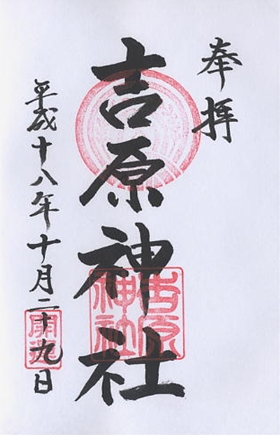 奉拝
吉原神社
平成十八年十月二十九日
吉原神社